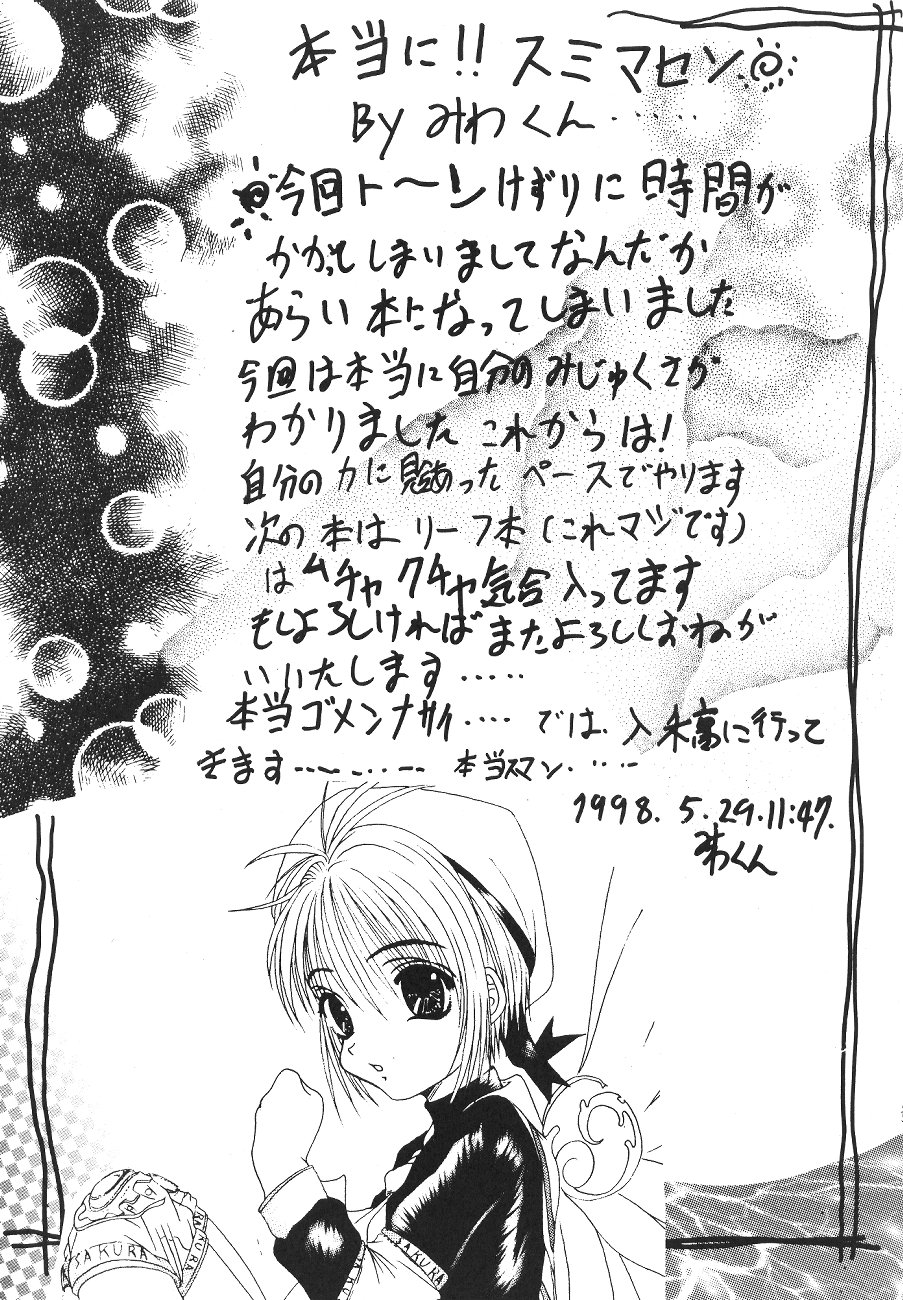 本当に!! スミマセン
By みわくん……
今回トーンけずりに時間が
かかってしまいましてなんだか
あらい本になってしまいました
今回は本当に自分のみじゅくさが
わかりました これからは!
自分の力に見あった ペースでやります
次の本は リーフ本(これマジです)
は ムチャクチャ気合入ってます
もしよろしければ またよろしくおねが
いいたします……
本当ゴメンナサイ…. では 入稿に行って
きます………… 本当スマン……
1998. 5. 29. 11:47.
みわくん
SAKURA
RA
KURA
SAKURA